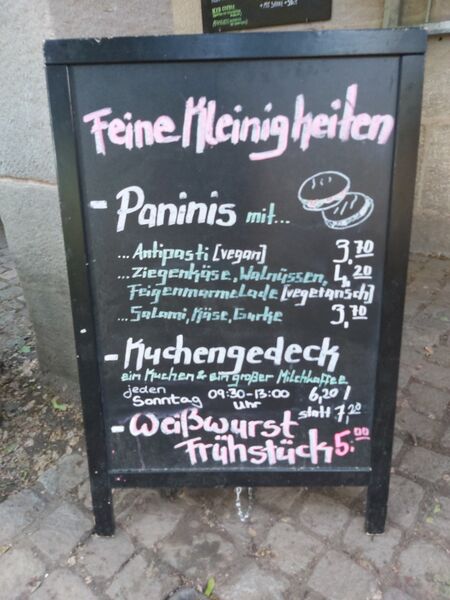 Feine Kleinigkeiten
- Paninis mit...
...Antipasti [vegan] 3,70
...Ziegenkäse, Walnüssen, 4,20
Feigenmarmelade [vegetarisch]
...Salami, Käse, Gurke 3,70
- Kuchengedeck
ein Kuchen & ein großer Milchkaffee
6,20!
statt 7,20
jeden Sonntag 09:30-13:00 Uhr
- Weißwurst
Frühstück 5.00